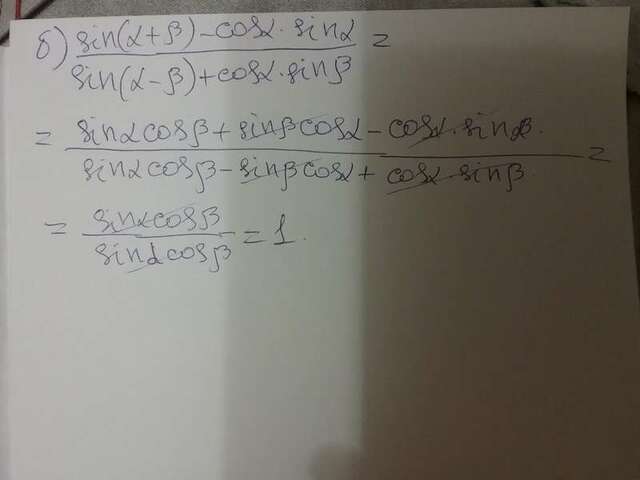 б) sin(α+β)-cosα·sinα =
sin(α-β)+cosα·sinβ
= sinαcosβ+sinβcosα-cosα·sinβ. =
sinαcosβ-sinβcosα+cosα·sinβ
= sinαcosβ = 1.
sinαcosβ